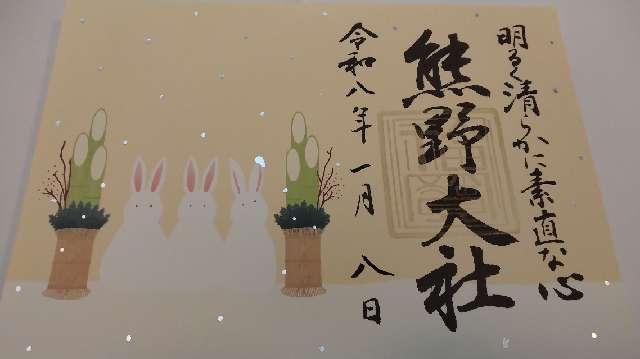 明るく清らかに素直な心
熊野大社
令和八年一月八日